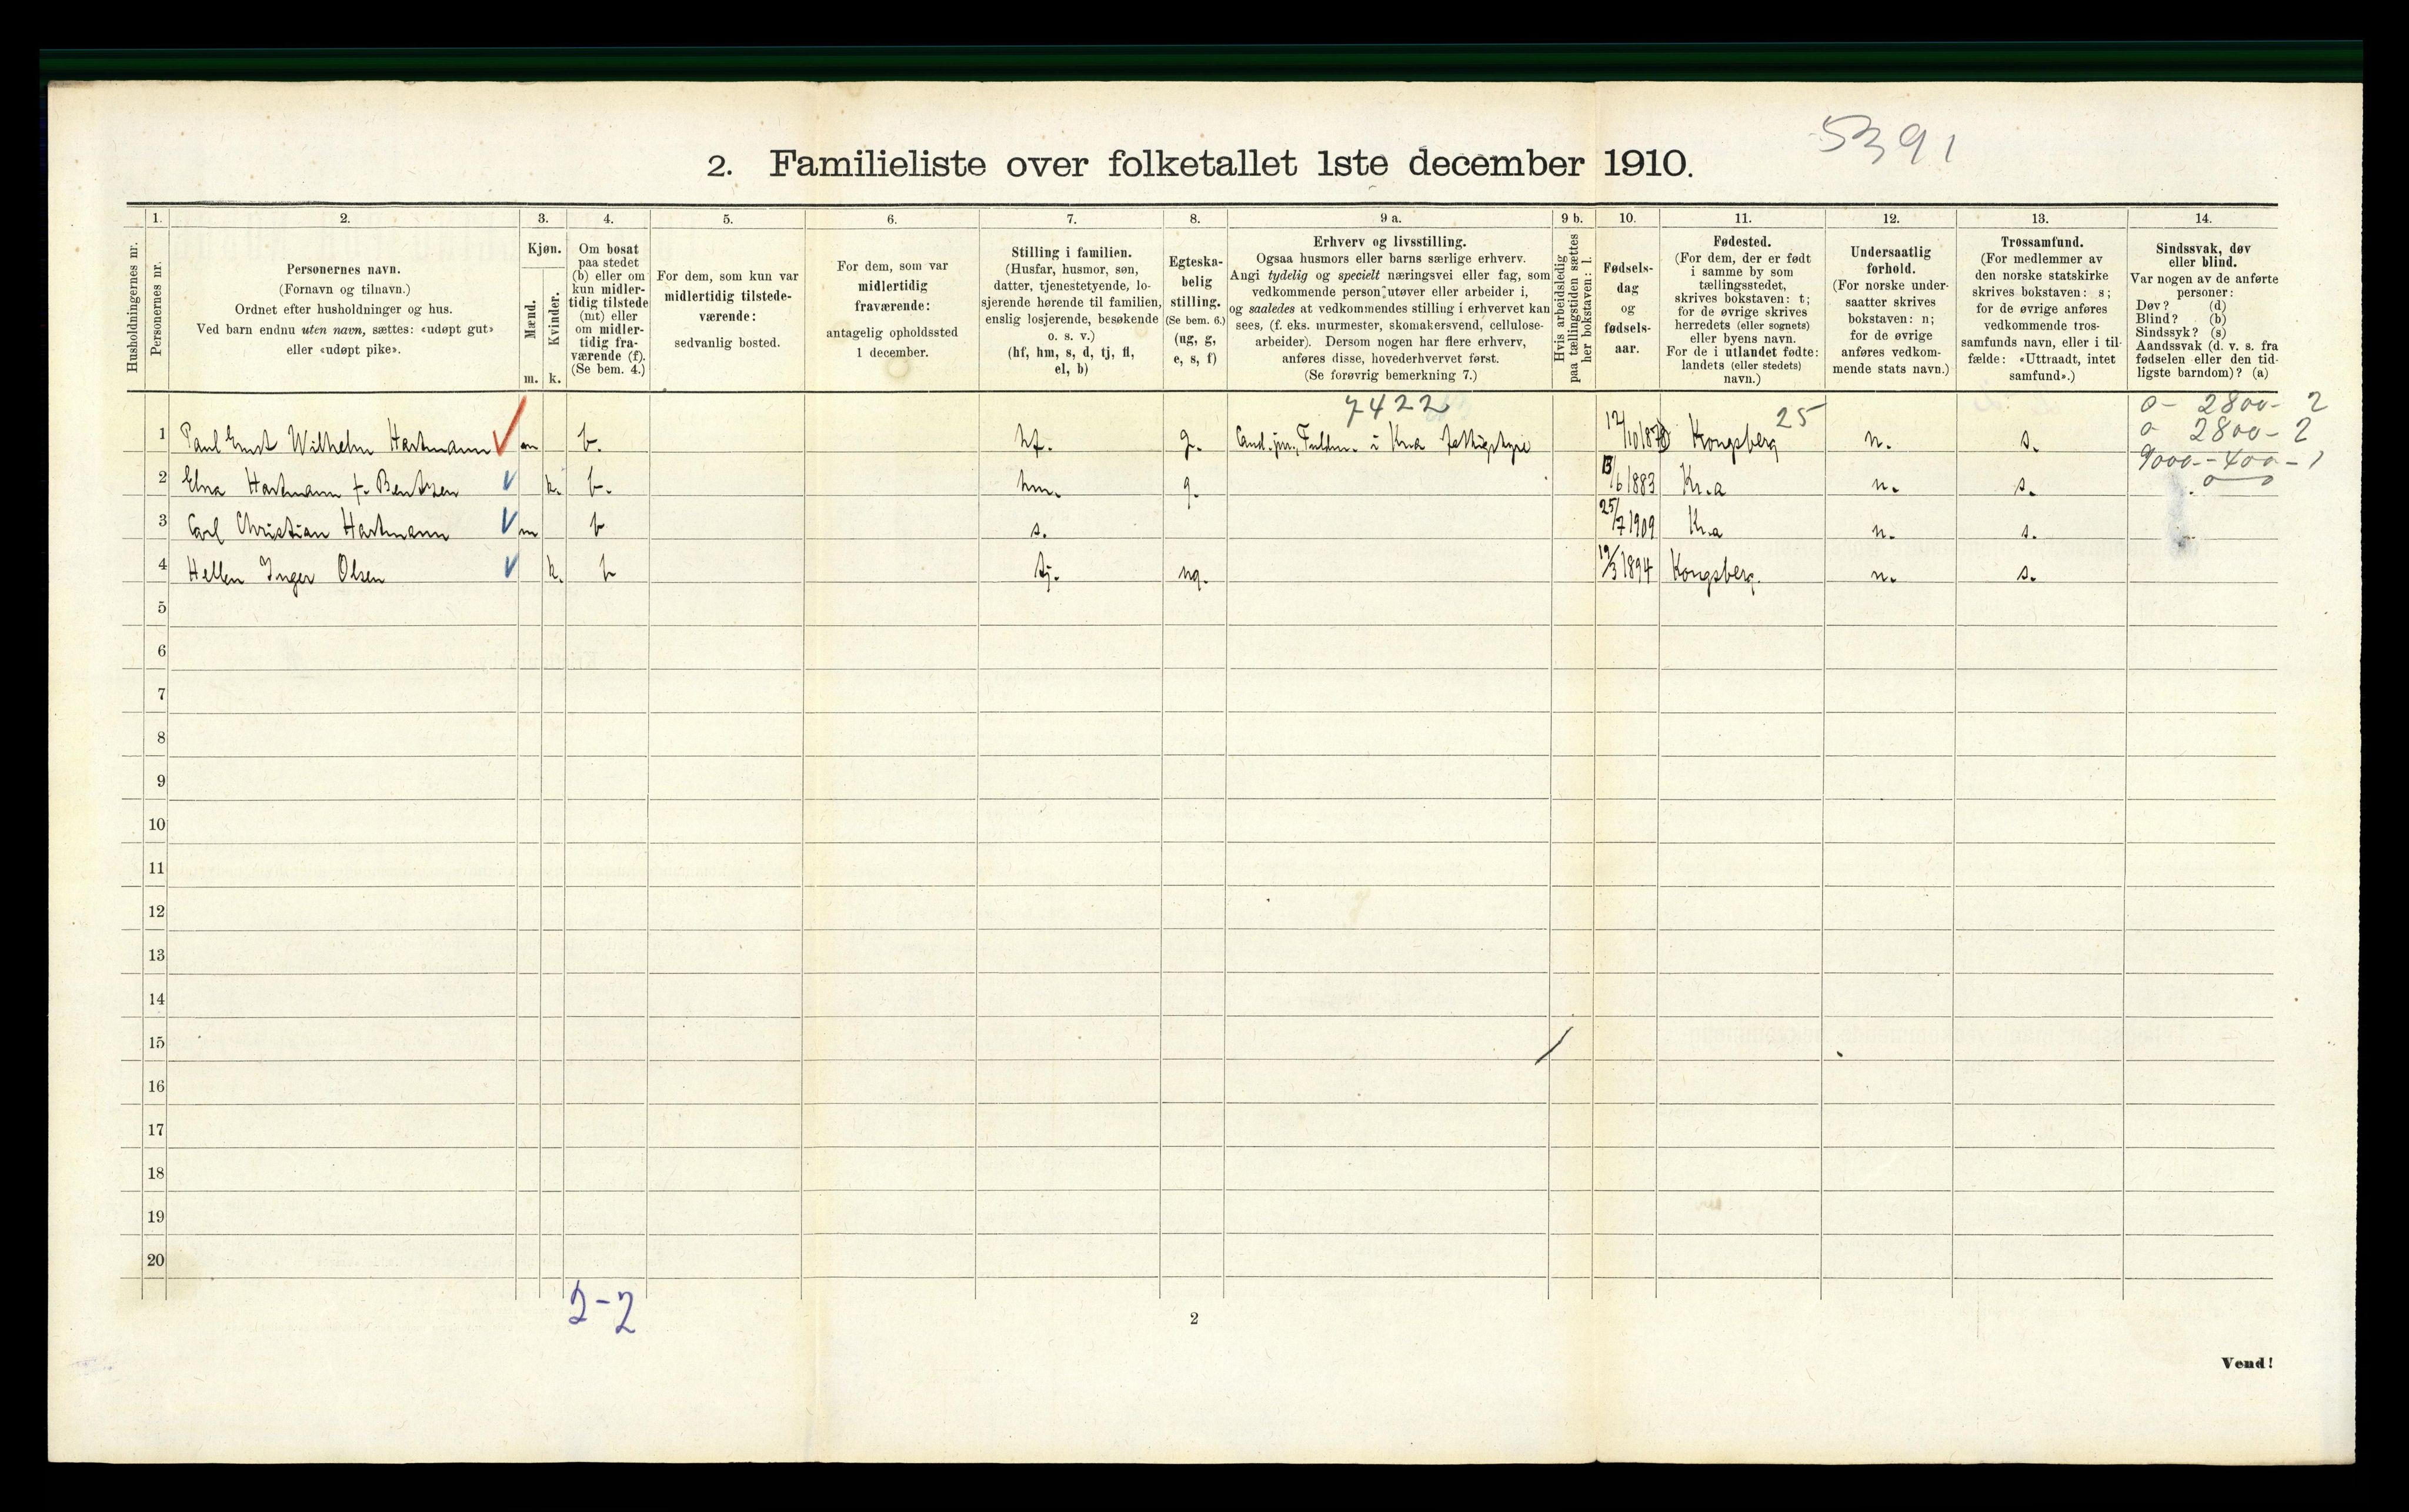 5391
2. Familieliste over folketallet 1ste december 1910.
1. 2. 3. 4. 5. 6. 7. 8. 9 a. 9 b. 10. 11. 12. 13. 14.
Husholdningernes nr.
Personernes nr.
Personernes navn.
(Fornavn og tilnavn.)
Ordnet efter husholdninger og hus.
Ved barn endnu uten navn, sættes: «udøpt gut»
eller «udøpt pike».
Kjøn.
Mænd.
Kvinder.
m. k.
Om bosat
paa stedet
(b) eller om
kun midler-
tidig tilstede
(mt) eller
om midler-
tidig fra-
værende (f).
(Se bem. 4.)
For dem, som kun var
midlertidig tilstede-
værende:
sedvanlig bosted.
For dem, som var
midlertidig
fraværende:
antagelig opholdssted
1 december.
Stilling i familien.
(Husfar, husmor, søn,
datter, tjenestetyende, lo-
sjerende hørende til familien,
enslig losjerende, besøkende
o. s. v.)
(hf, hm, s, d, tj, fl,
el, b)
Egteska-
belig
stilling.
(Se bem. 6.)
(ug, g,
e, s, f)
Erhverv og livsstilling.
Ogsaa husmors eller barns særlige erhverv.
Angi tydelig og specielt næringsvei eller fag, som
vedkommende person utøver eller arbeider i,
og saaledes at vedkommendes stilling i erhvervet kan
sees, (f. eks. murmester, skomakersvend, cellulose-
arbeider). Dersom nogen har flere erhverv,
anføres disse, hovederhvervet først.
(Se forøvrig bemerkning 7.)
Hvis arbeidsledig
paa tællingstiden sættes
her bokstaven: l.
Fødsels-
dag
og
fødsels-
aar.
Fødested.
(For dem, der er født
i samme by som
tællingsstedet,
skrives bokstaven: t;
for de øvrige skrives
herredets (eller sognets)
eller byens navn.
For de i utlandet fødte:
landets (eller stedets)
navn.)
Undersaatlig
forhold.
(For norske under-
saatter skrives
bokstaven: n;
for de øvrige
anføres vedkom-
mende stats navn.)
Trossamfund.
(For medlemmer av
den norske statskirke
skrives bokstaven: s;
for de øvrige anføres
vedkommende tros-
samfunds navn, eller i til-
fælde: «Uttraadt, intet
samfund».)
Sindssvak, døv
eller blind.
Var nogen av de anførte
personer:
Døv? (d)
Blind? (b)
Sindssyk? (s)
Aandssvak (d. v. s. fra
fødselen eller den tid-
ligste barndom)? (a)
7422 25 0 - 2800 - 2
1 Paul Ernst Wilhelm Hartmann m b. hf. g. Cand. jur., Fuldm. i Kra fattigstyre 12/10 1878 Kongsberg n. s. 0 2800 - 2
9000 - 400 - 1
2 Elna Hartmann f. Bentzen k. b. hm. g. 13/6 1883 Kr.a n. s.
3 Carl Christian Hartmann m b s. 25/7 1909 Kr.a n. s.
4 Hellen Inger Olsen k. b tj. ug. 19/3 1894 Kongsberg. n. s.
5
6
7
8
9
10
11
12
13
14
15
16
17
18
19
20
2-2
2
Vend!